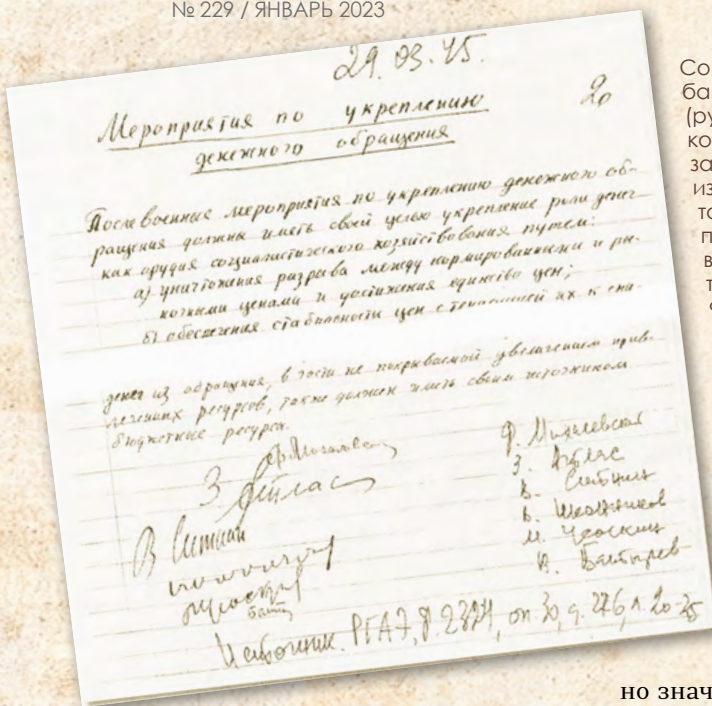 № 229 / ЯНВАРЬ 2023
29.03.45.
20
Мероприятия по укреплению
денежного обращения
Послевоенные мероприятия по укреплению денежного об-
ращения должны иметь своей целью укрепление роли денег
как орудия социалистического хозяйствования путем:
а) уничтожения разрыва между нормированными и ры-
ночными ценами и достижения единства цен;
б) обеспечения стабильности цен с тенденцией их к сни-
денег из обращения, в части не покрываемой увеличением прив-
леченных ресурсов, также должен иметь своим источником
бюджетные ресурсы.
З Атлас
В Ситнин
Ф. Михалевская
З. Атлас
В. Ситнин
В. Иконников
М. Усоскин
В. Батырев
Источник. РГАЭ, Ф. 2324, оп. 30, д. 276, л. 20-25
Со
ба
(ру
ко
за
из
та
п
в
т
но знач